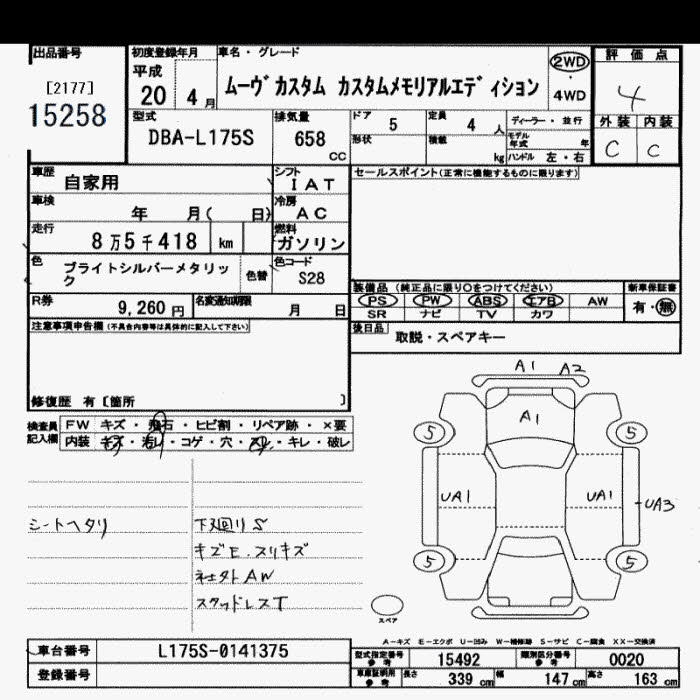 出品番号
[2177]
15258
初度登録年月
平成
20 4 月
車名・グレード
ムーヴカスタム カスタムメモリアルエディション
2WD
・
4WD
評価点
4
外装 内装
C C
型式
DBA-L175S
排気量
658
CC
ドア
5
形状
定員
4 人
積載
kg
ディーラー・並行
モデル年式 年
ハンドル 左・右
車歴
自家用
シフト
IAT
車検
年 月( 日)
冷房
AC
走行
8万5千418 km
燃料
ガソリン
色
ブライトシルバーメタリック
色替
色コード
S28
セールスポイント(正常に機能するものに限ります)
R券
9,260 円
名変通知期限
月 日
装備品 (純正品に限り○をつけてください)
PS PW ABS エアB AW
SR ナビ TV カワ
新車保証書
有・無
後日品
取説・スペアキー
注意事項申告欄(不具合内容等は具体的に記入して下さい)
修復歴 有[箇所 ]
検査員記入欄
FW キズ・飛石・ヒビ割・リペア跡・×要
内装 キズ・汚レ・コゲ・穴・スレ・キレ・破レ
シートヘタリ
下廻りS
キズE.スリキズ
社外AW
スタッドレスT
A1 A2
A1
5 5
UA1 UA1 UA3
5 5
スペア
A-キズ E-エクボ U-凹み W-補修跡 S-サビ C-腐食 XX-交換済
車台番号
L175S-0141375
登録番号
型式指定番号 参考
15492
類別区分番号 参考
0020
車庫証明用 参考
長さ 339 cm 幅 147 cm 高さ 163 cm